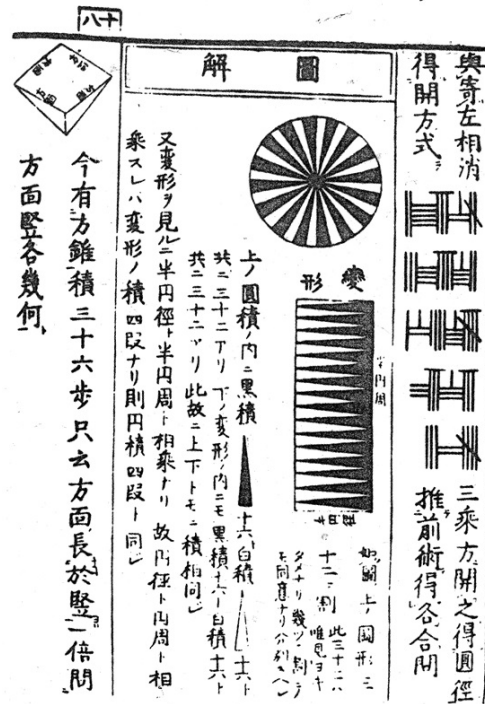 八十
與寄左相消
得開方式
三乘方開之得圓徑
推前術得各合問
圖解
變形
半円周
半円径
如圖上ノ圓形三
十二ニ割 此三十二ハ
唯見ヨキ
タメナリ幾ツニ割テ
モ同意ナリ
上ノ圓積ノ内ニ黒積
十六白積
十六ト
共ニ三十二アリ下ノ変形ノ内ニモ黒積十六白積十六ト
共ニ三十二ツリ此故ニ上下トモニ積相同シ
又変形ヲ見ルニ半円徑ト半円周ト相乘ナリ故円徑ト円周ト相
乘スレハ変形ノ積四段ナリ則円積四段ト同シ
今有方錐積三十六歩只云方面長於竪一倍問
方面竪各幾何